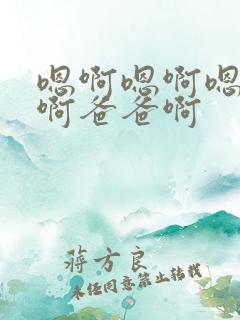 嗯啊嗯啊嗯
啊爸爸啊
蒋方良
未经同意禁止转载